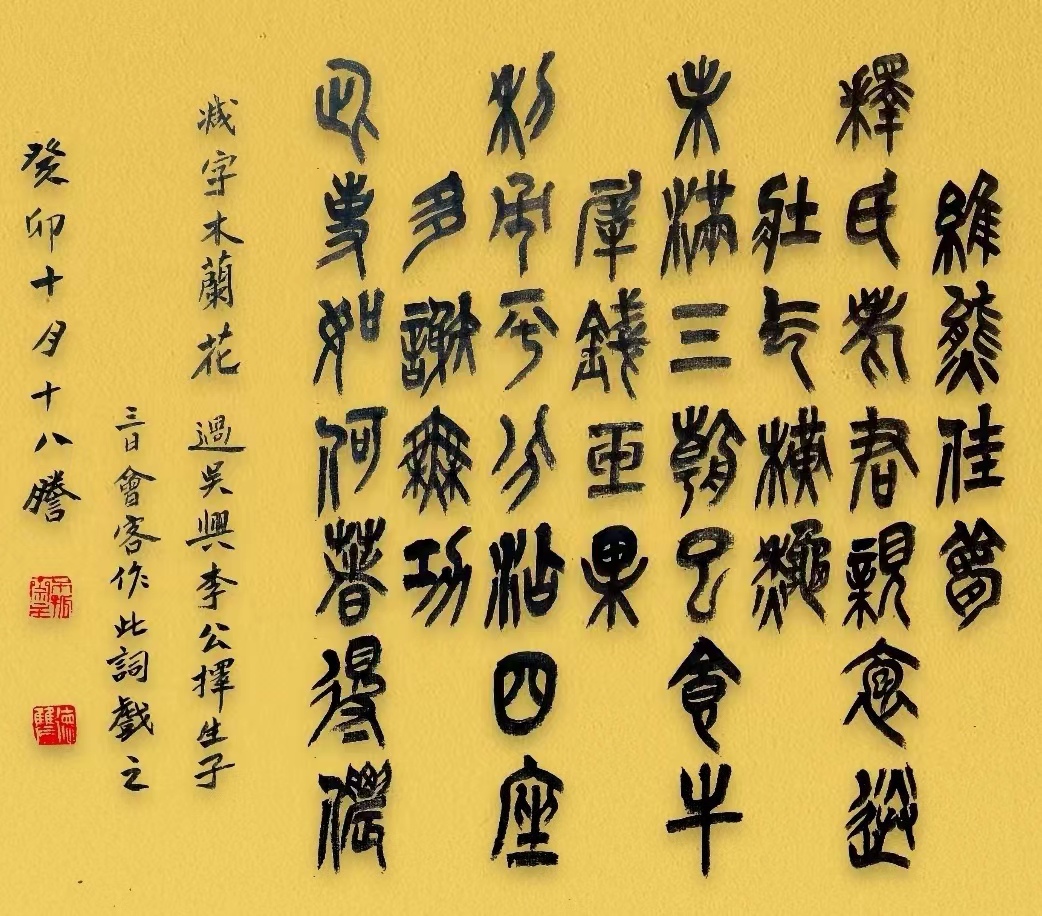 維熊佳夢
釋氏老君親抱送
壯气橫秋
未滿三朝已食牛
犀錢玉果
利市平分沾四座
多謝無功
此事如何著得儂
減字木蘭花 過吳興李公擇生子
三日會客作此詞戲之
癸卯十月十八謄